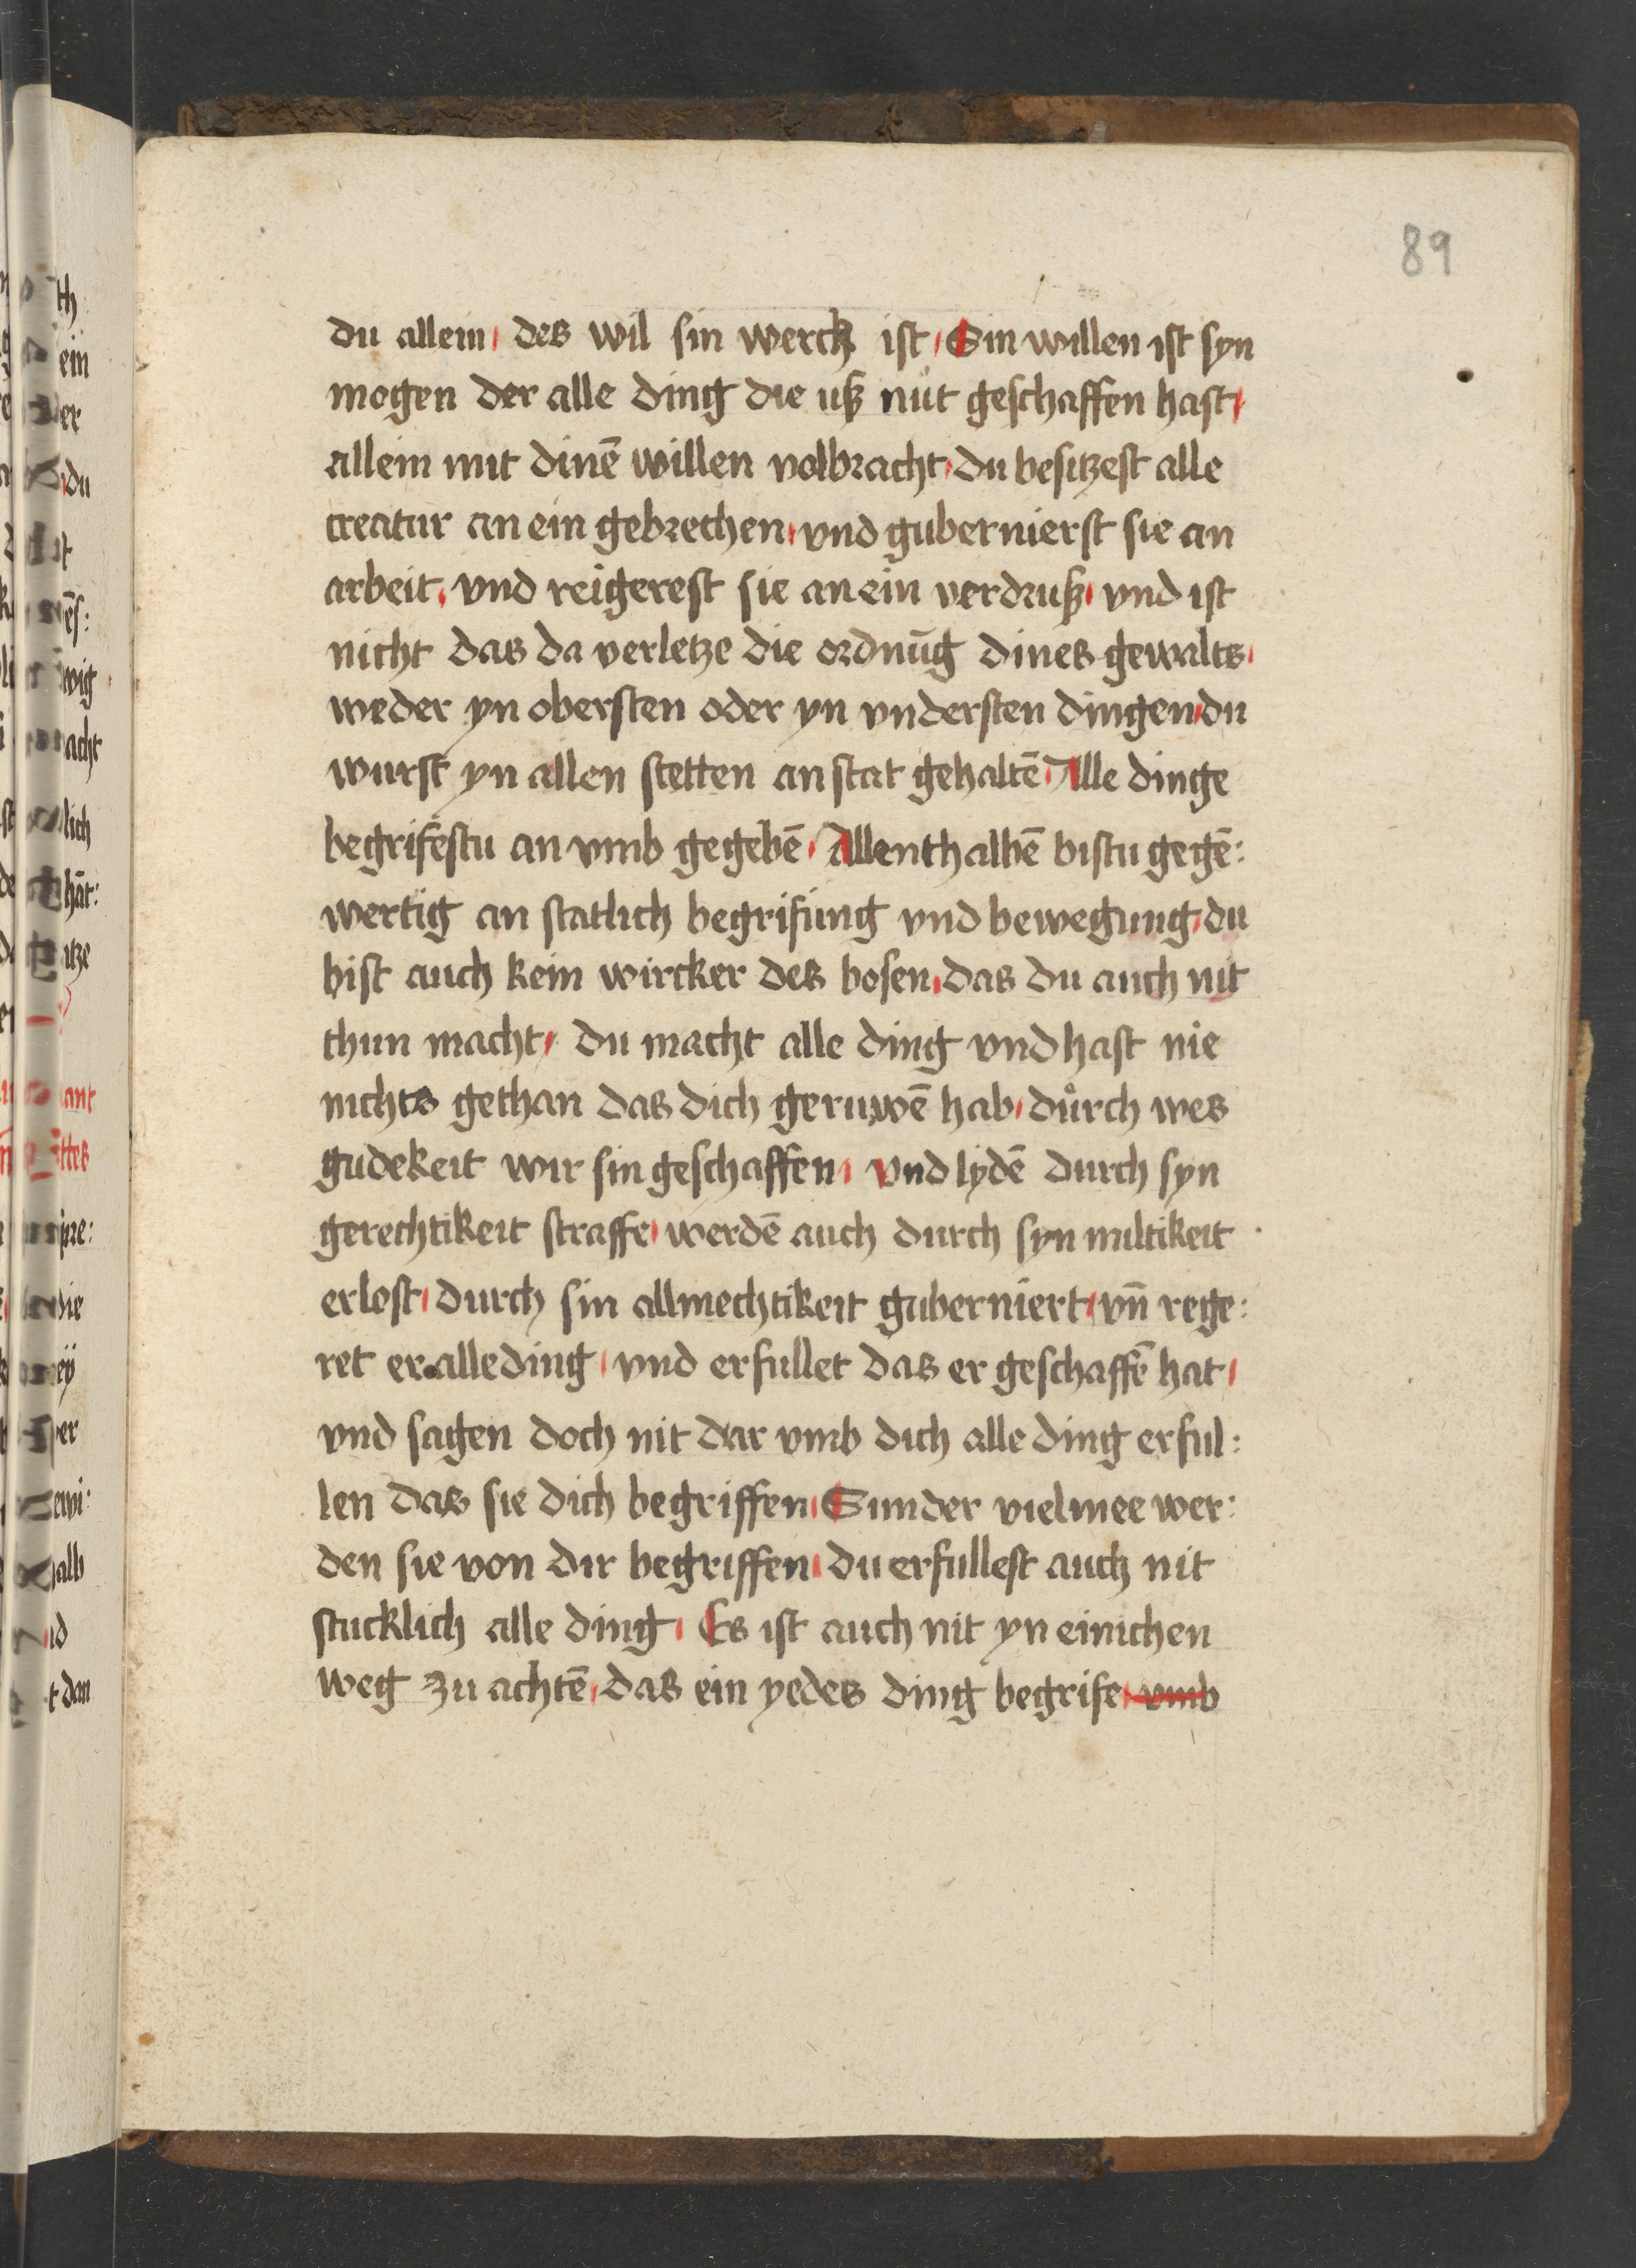 89
du allein / des wil sin werck ist / Sin willen ist syn
mogen der alle ding die uß nut geschaffen hast /
allein mit dinē willen volbracht / du besitzest alle
creatur an ein gebrechen / vnd gubernierst sie an
arbeit / vnd reigerest sie an ein verdruß / vnd ist
nicht das da verletze die ordnūg dines gewalts /
weder yn obersten oder yn vndersten dingen / du
wurst yn allen stetten an stat gehaltē / Alle dinge
begrifestu an vmb gegebē / Allenthalbē bistu gegē:
wertig an statlich begrifung vnd bewegung / du
bist auch kein wircker des bosen / das du auch nit
thun macht / du macht alle ding vnd hast nie
nichts gethan das dich geruwē hab / důrch wes
gudekeit wir sin geschaffen / vnd lydē durch syn
gerechtikeit straffe / werdē auch durch syn miltikeit
erlost / durch sin allmechtikeit guberniert / vn̄ rege:
ret er alle ding / vnd erfullet das er geschaffē hat /
vnd sagen doch nit dar vmb dich alle ding erful:
len das sie dich begriffen / Sunder vielmee wer:
den sie von dir begriffen / du erfullest auch nit
stucklich alle ding / Es ist auch nit yn einichen
weg zu achtē / das ein yedes ding begrife / vmb